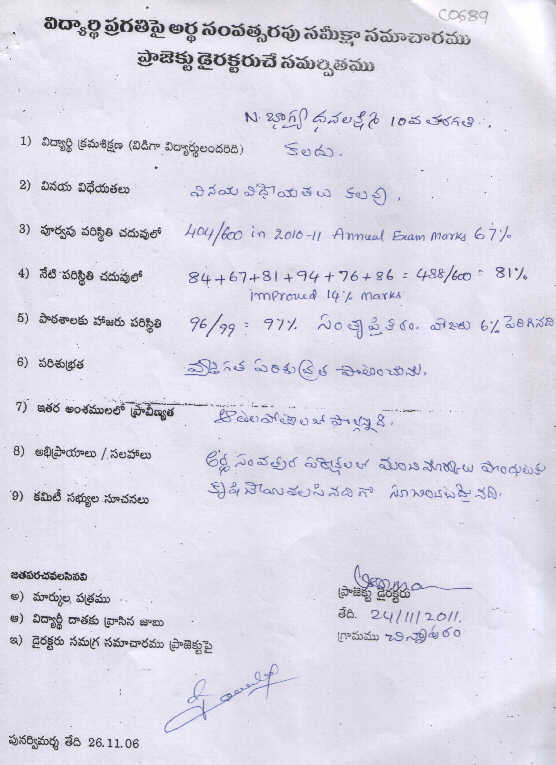 C0689
విద్యార్థి ప్రగతిపై అర్థ సంవత్సరపు సమీక్షా సమాచారము
ప్రాజెక్టు డైరక్టరుచే సమర్పితము
N. భాగ్య ధనలక్ష్మి 10వ తరగతి.
1) విద్యార్థి క్రమశిక్షణ (విడిగా విద్యార్థులందరిది) కలదు.
2) వినయ విధేయతలు వినయ విధేయతలు కలవు.
3) పూర్వపు పరిస్థితి చదువులో 404/600 in 2010-11 Annual Exam Marks 67%
4) నేటి పరిస్థితి చదువులో 84+67+81+94+76+86 = 488/600 = 81%
improved 14% marks
5) పాఠశాలకు హాజరు పరిస్థితి 96/99 = 97% సంతృప్తికరం. హాజరు 6% పెరిగినది
6) పరిశుభ్రత వ్యక్తిగత పరిశుభ్రత పాటించును.
7) ఇతర అంశములలో ప్రావీణ్యత ఆటలపోటీలలో పాల్గొన్నది.
8) అభిప్రాయాలు / సలహాలు అర్థ సంవత్సర పరీక్షలలో మంచి మార్కులు పొందుటకు
9) కమిటీ సభ్యుల సూచనలు కృషి చేయవలసినదిగా సూచించడమైనది.
జతపరచవలసినవి
అ) మార్కుల పత్రము
ఆ) విద్యార్థి దాతకు వ్రాసిన జాబు
ఇ) డైరక్టరు సమగ్ర సమాచారము ప్రాజెక్టుపై
ప్రాజెక్టు డైరక్టరు
తేది. 24/11/2011.
గ్రామము చిన్నాపురం
పునర్విమర్శ తేది 26.11.06